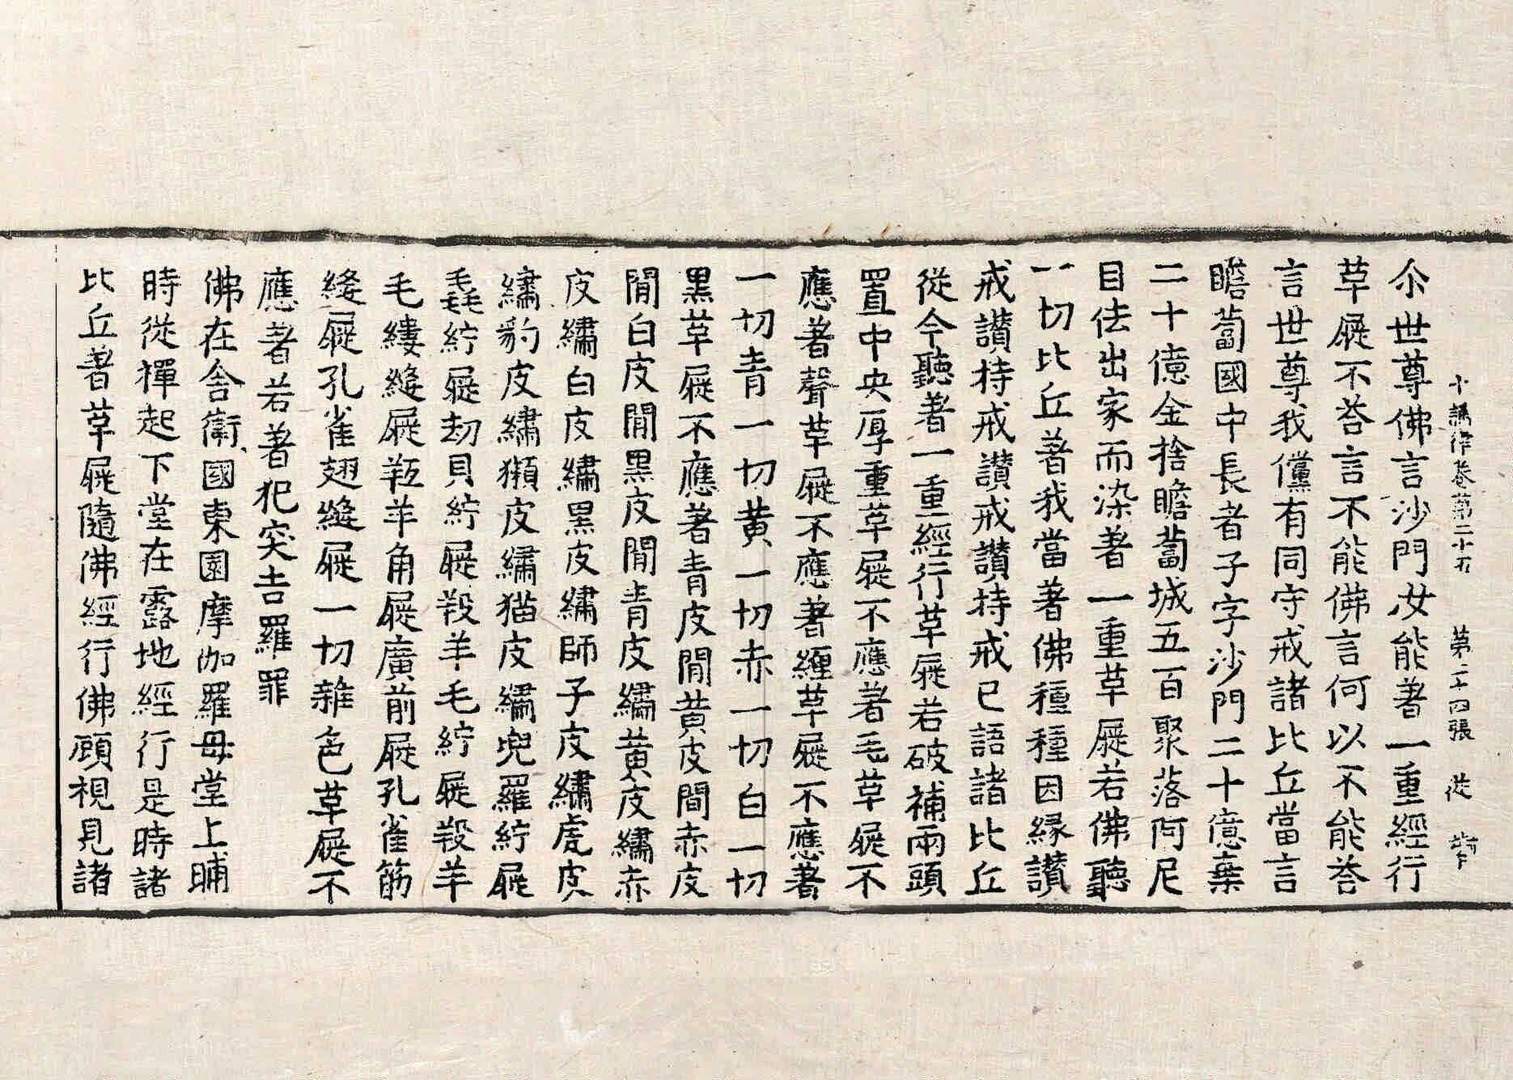 十誦律卷第二十五　第二十四張　從
尒世尊佛言沙門汝能著一重經行
草屣不荅言不能佛言何以不能荅
言世尊我儻有同守戒諸比丘當言
瞻蔔國中長者子字沙門二十億棄
二十億金捨瞻蔔城五百聚落阿尼
目佉出家而染著一重草屣若佛聽
一切比丘著我當著佛種種因緣讃
戒讃持戒讃戒讃持戒已語諸比丘
從今聽著一重經行草屣若破補兩頭
置中央厚重草屣不應著毛草屣不
應著聲草屣不應著纏草屣不應著
一切青一切黃一切赤一切白一切
黑草屣不應著青皮閒黃皮間赤皮
閒白皮閒黑皮閒青皮繡黃皮繡赤
皮繡白皮繡黑皮繡師子皮繡虎皮
繡豹皮繡獺皮繡猫皮繡兜羅紵屣
毳紵屣劫貝紵屣羖羊毛紵屣羖羊
毛縷縫屣羝羊角屣廣前屣孔雀筋
縫屣孔雀翅縫屣一切雜色草屣不
應著若著犯突吉羅罪
佛在舍衛國東園摩伽羅母堂上晡
時從禪起下堂在露地經行是時諸
比丘著草屣隨佛經行佛顧視見諸